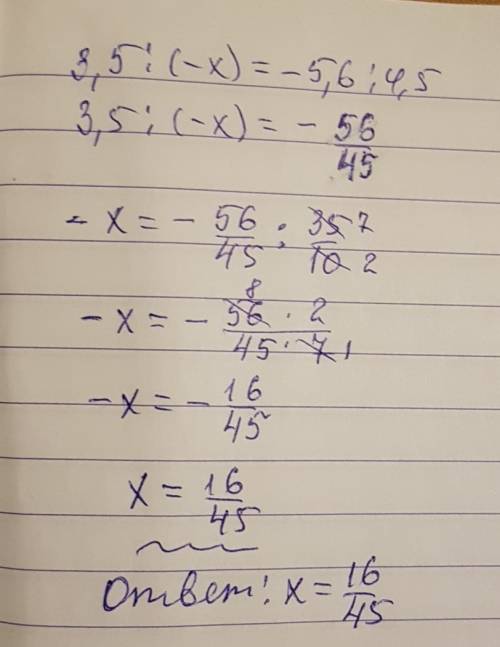 3,5 : (-x) = -5,6 : 4,5
3,5 : (-x) = - 56/45
- x = - 56/45 : 35 7/10 2
- x = - 8 56 · 2/45 · 7 1
- x = - 16/45
x = 16/45
Ответ: x = 16/45